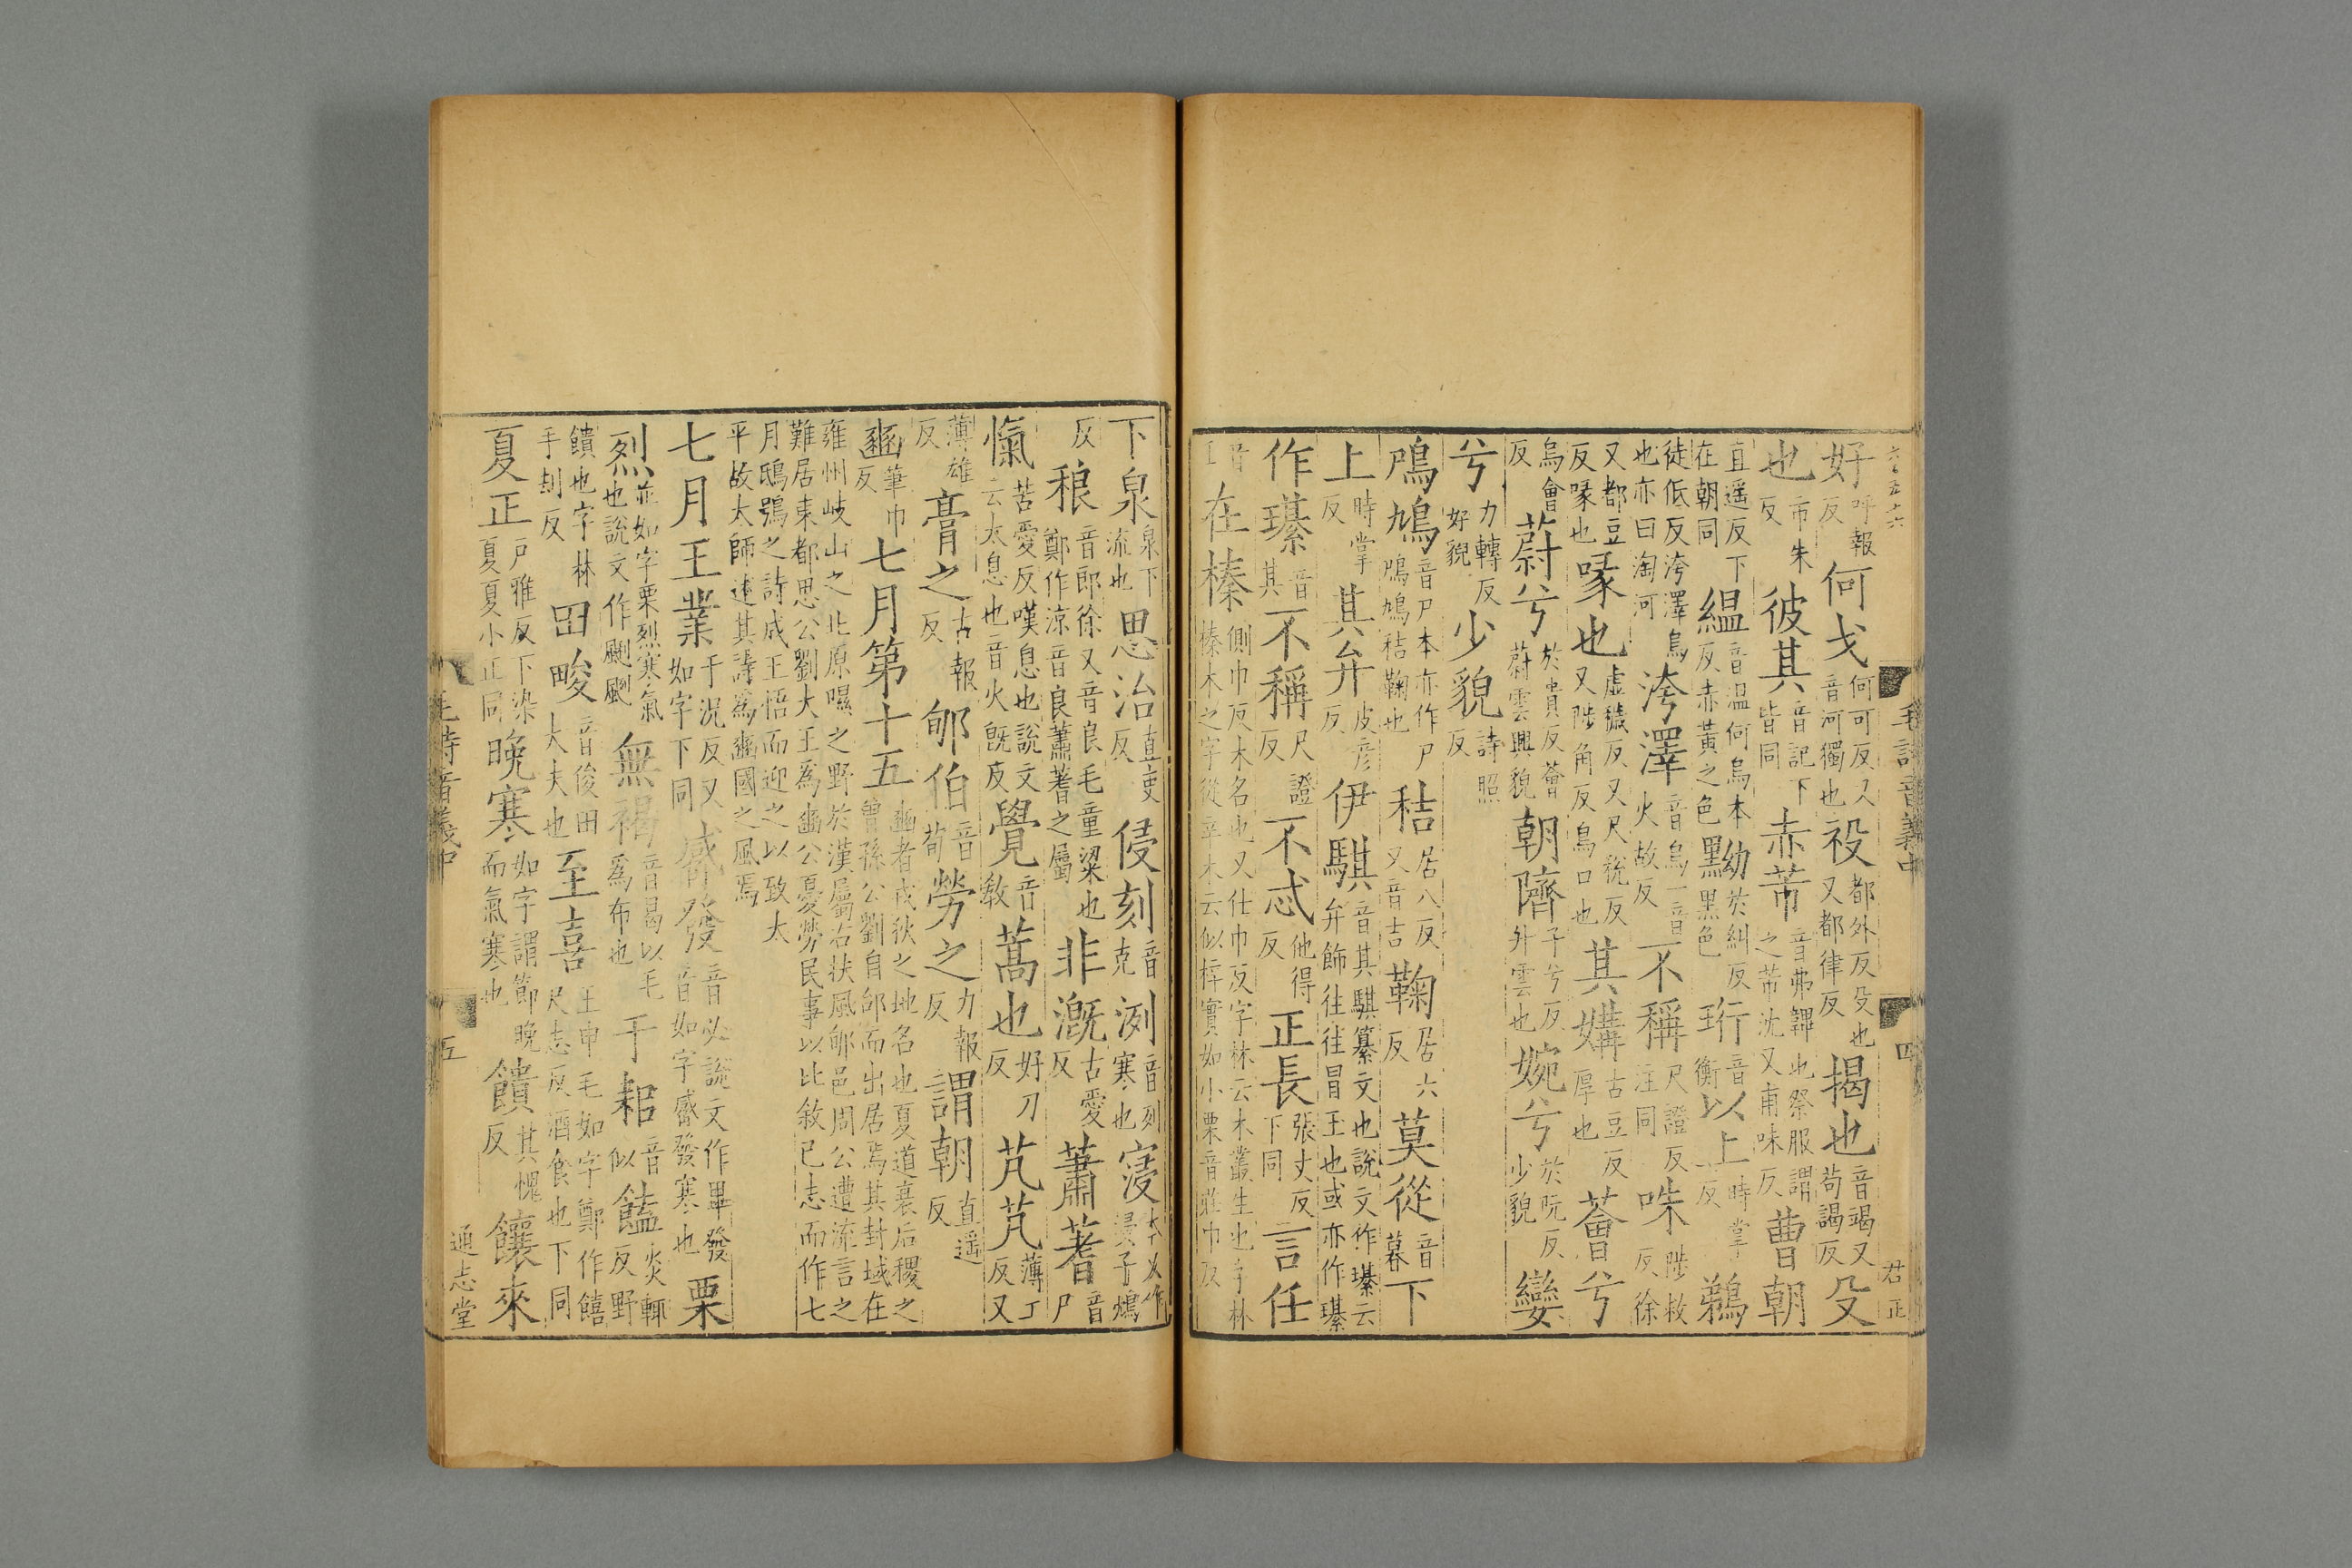 六百五十六
毛詩音義中 四 君正
好呼報反何戈何可反又音河獨也祋都外反殳也又都律反揭也音竭又苟謁反殳
也市朱反彼其音記下皆同赤芾音弗韠也祭服謂之芾沈又甫味反曹朝
直遥反下在朝同緼音温何烏本反赤黃之色黝於糾反黑色珩音衡以上時掌反鵜
徒低反洿澤鳥也亦曰淘河洿澤音烏一音火故反不稱尺證反注同咮陟救反徐
又都豆反喙也喙也虛穢反又尺稅反又陟角反鳥口也其媾古豆反厚也薈兮
烏會反蔚兮於貴反薈蔚雲興貌朝隮子兮反升雲也婉兮於阮反少貌孌
兮力轉反好貌少貌詩照反
鳲鳩音尸本亦作尸鳲鳩秸鞠也秸居八反又音吉鞠居六反莫從音暮下
上時掌反其弁皮彦反伊騏音其騏綦文也說文作璂云弁飾往往冒玉也或亦作璂
作璂音其不稱尺證反不忒他得反正長張丈反下同言任
音壬在榛側巾反木名也又仕巾反字林云木叢生也字林榛木之字從辛木云似梓實如小栗音莊巾反
下泉泉下流也思治直吏反侵刻音克洌音列寒也寖本又作浸子鴆
反稂音郎徐又音良毛童粱也鄭作涼音良蕭蓍之屬非溉古愛反蕭蓍音尸
愾苦愛反嘆息也說文云太息也音火旣反覺音敎蒿也好刀反芃芃薄工反又
薄雄反膏之古報反郇伯音荀勞之力報反謂朝直遥反
豳筆巾反七月第十五豳者戎狄之地名也夏道衰后稷之曾孫公劉自邰而出居焉其封域在
雍州岐山之北原隰之野於漢屬右扶風郇邑周公遭流言之難居東都思公劉大王爲豳公憂勞民事以比敘己志而作七
月鴟鴞之詩成王悟而迎之以致太平故太師述其詩爲豳國之風焉
七月王業于況反又如字下同觱發音必說文作畢發音如字觱發寒也栗
烈並如字栗烈寒氣也說文作颲颲無褐音曷以毛爲布也于耜音似饁炎輒反野
饋也字林手刼反田畯音俊田大夫也至喜王申毛如字鄭作饎尺志反酒食也下同
夏正戶雅反下染夏夏小正同晚寒如字謂節晚而氣寒也饋其愧反饟來
毛詩音義中 五 通志堂